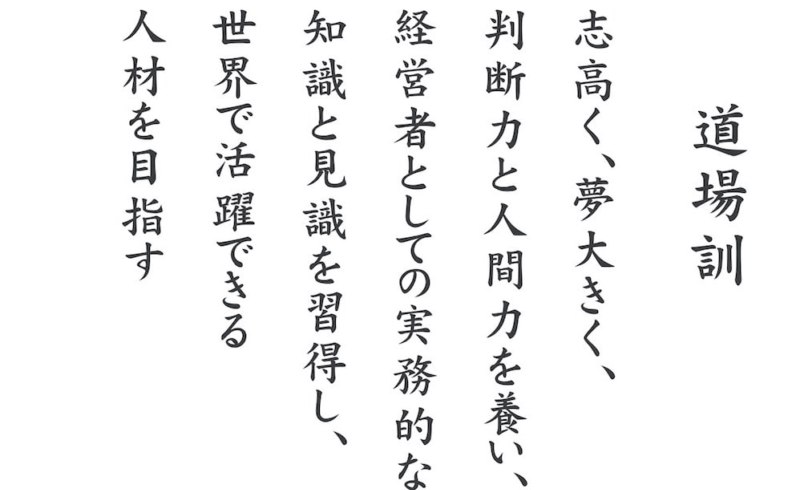 道場訓
志高く、夢大きく、
判断力と人間力を養い、
経営者としての実務的な
知識と見識を習得し、
世界で活躍できる
人材を目指す